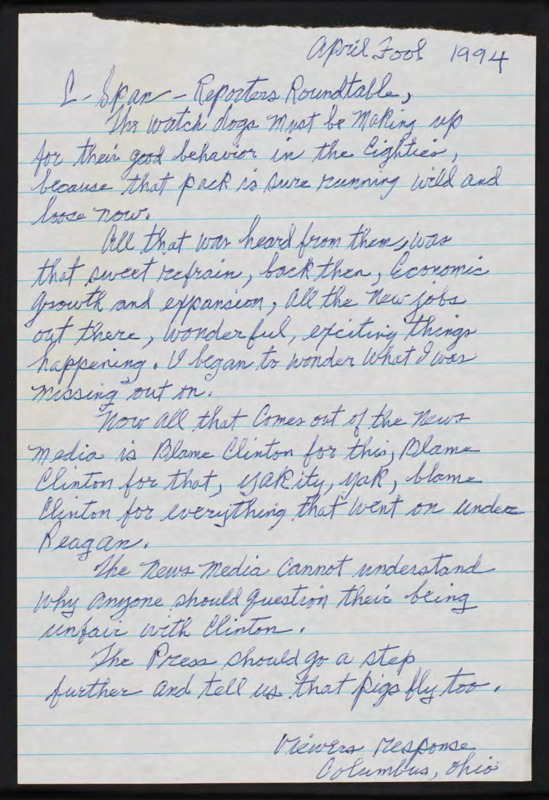 April Fool 1994
C-Span - Reporters Roundtable,
The watch dogs must be making up
for their good behavior in the Eighties,
because that pack is sure running wild and
loose now.
All that was heard from them, was
that sweet refrain, back then, Economic
growth and expansion, all the new jobs
out there, wonderful, exciting things
happening. I began to wonder what I was
missing out on.
Now all that comes out of the news
media is Blame Clinton for this, Blame
Clinton for that, yakity, yak, blame
Clinton for everything that went on under
Reagan.
The news media cannot understand
why anyone should question their being
unfair with Clinton.
The Press should go a step
further and tell us that pigs fly too.
Viewers response
Columbus, Ohio